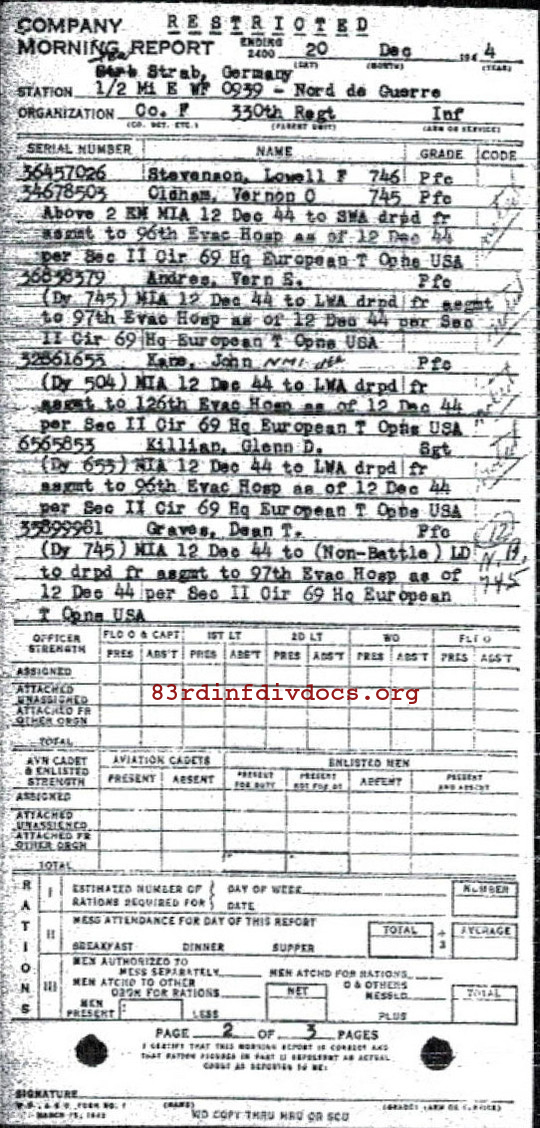 RESTRICTED
COMPANY
MORNING REPORT ENDING 2400 20 Dec 1944
(DAY) (MONTH) (YEAR)
Strb Strab, Germany
STATION 1/2 Mi E WF 0939 - Nord de Guerre
ORGANIZATION Co. F 330th Regt Inf
(CO. DET. ETC.) (PARENT UNIT) (ARM OR SERVICE)
SERIAL NUMBER NAME GRADE CODE
36457026 Stevenson, Lowell F 746 Pfc
34678503 Oldham, Vernon C 745 Pfc
Above 2 EM MIA 12 Dec 44 to SWA drpd fr
asgmt to 96th Evac Hosp as of 12 Dec 44
per Sec II Cir 69 Hq European T Opns USA
36838379 Andres, Vern E. Pfc
(Dy 745) MIA 12 Dec 44 to LWA drpd fr asgmt
to 97th Evac Hosp as of 12 Dec 44 per Sec
II Cir 69 Hq European T Opns USA
32861653 Kane, John NMI Pfc
(Dy 504) MIA 12 Dec 44 to LWA drpd fr
asgmt to 126th Evac Hosp as of 12 Dec 44
per Sec II Cir 69 Hq European T Opns USA
6565853 Killian, Glenn D. Sgt
(Dy 653) MIA 12 Dec 44 to LWA drpd fr
asgmt to 96th Evac Hosp as of 12 Dec 44
per Sec II Cir 69 Hq European T Opns USA
35899981 Graves, Dean T. Pfc
(Dy 745) MIA 12 Dec 44 to (Non-Battle) LD
to drpd fr asgmt to 97th Evac Hosp as of
12 Dec 44 per Sec II Cir 69 Hq European 745
T Opns USA
OFFICER STRENGTH FLD O & CAPT 1ST LT 2D LT WO FLT O
PRES ABS'T PRES ABS'T PRES ABS'T PRES ABS'T PRES ABS'T
ASSIGNED
ATTACHED UNASSIGNED
83rdinfdivdocs.org
ATTACHED FR OTHER ORGN
TOTAL
AVN CADET & ENLISTED STRENGTH AVIATION CADETS ENLISTED MEN
PRESENT ABSENT PRESENT FOR DUTY PRESENT NOT FOR DY ABSENT PRESENT AND ABSENT
ASSIGNED
ATTACHED UNASSIGNED
ATTACHED FR OTHER ORGN
TOTAL
RATIONS
I ESTIMATED NUMBER OF DAY OF WEEK NUMBER
RATIONS REQUIRED FOR DATE
II MESS ATTENDANCE FOR DAY OF THIS REPORT TOTAL ÷ 3 AVERAGE
BREAKFAST DINNER SUPPER
III MEN AUTHORIZED TO MESS SEPARATELY MEN ATCHD FOR RATIONS
MEN ATCHD TO OTHER ORGN FOR RATIONS NET O & OTHERS MESSED TOTAL
MEN PRESENT LESS PLUS
PAGE 2 OF 3 PAGES
I CERTIFY THAT THIS MORNING REPORT IS CORRECT AND
THAT RATION FIGURES IN PART II REPRESENT AN ACTUAL
COUNT AS REPORTED TO ME:
SIGNATURE
FORM NO. 1 (NAME) (GRADE) (ARM OR SERVICE)
MARCH 15, 1943 NO COPY THRU MRU OR SCU